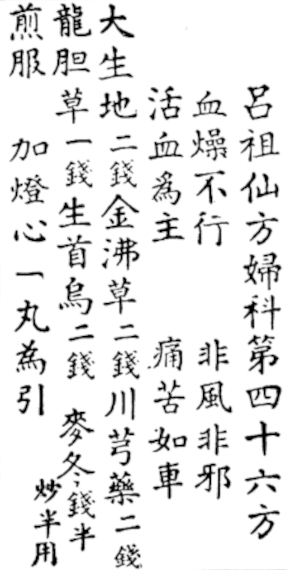 呂祖仙方婦科第四十六方
血燥不行 非風非邪
活血為主 痛苦如車
大生地二錢金沸草二錢川芎藥二錢
龍胆草一錢生首烏二錢 麥冬錢半
煎服 加燈心一丸為引 炒半用